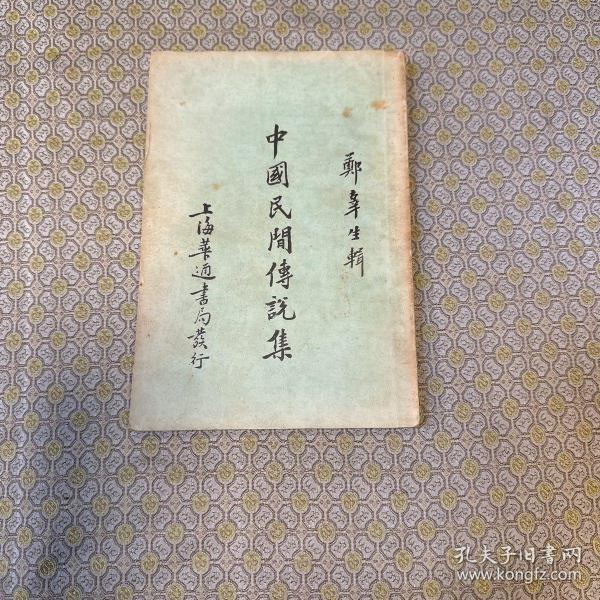 鄭辜生輯
中國民間傳說集
上海華通書局發行
孔夫子旧书网
www.kongfz.com